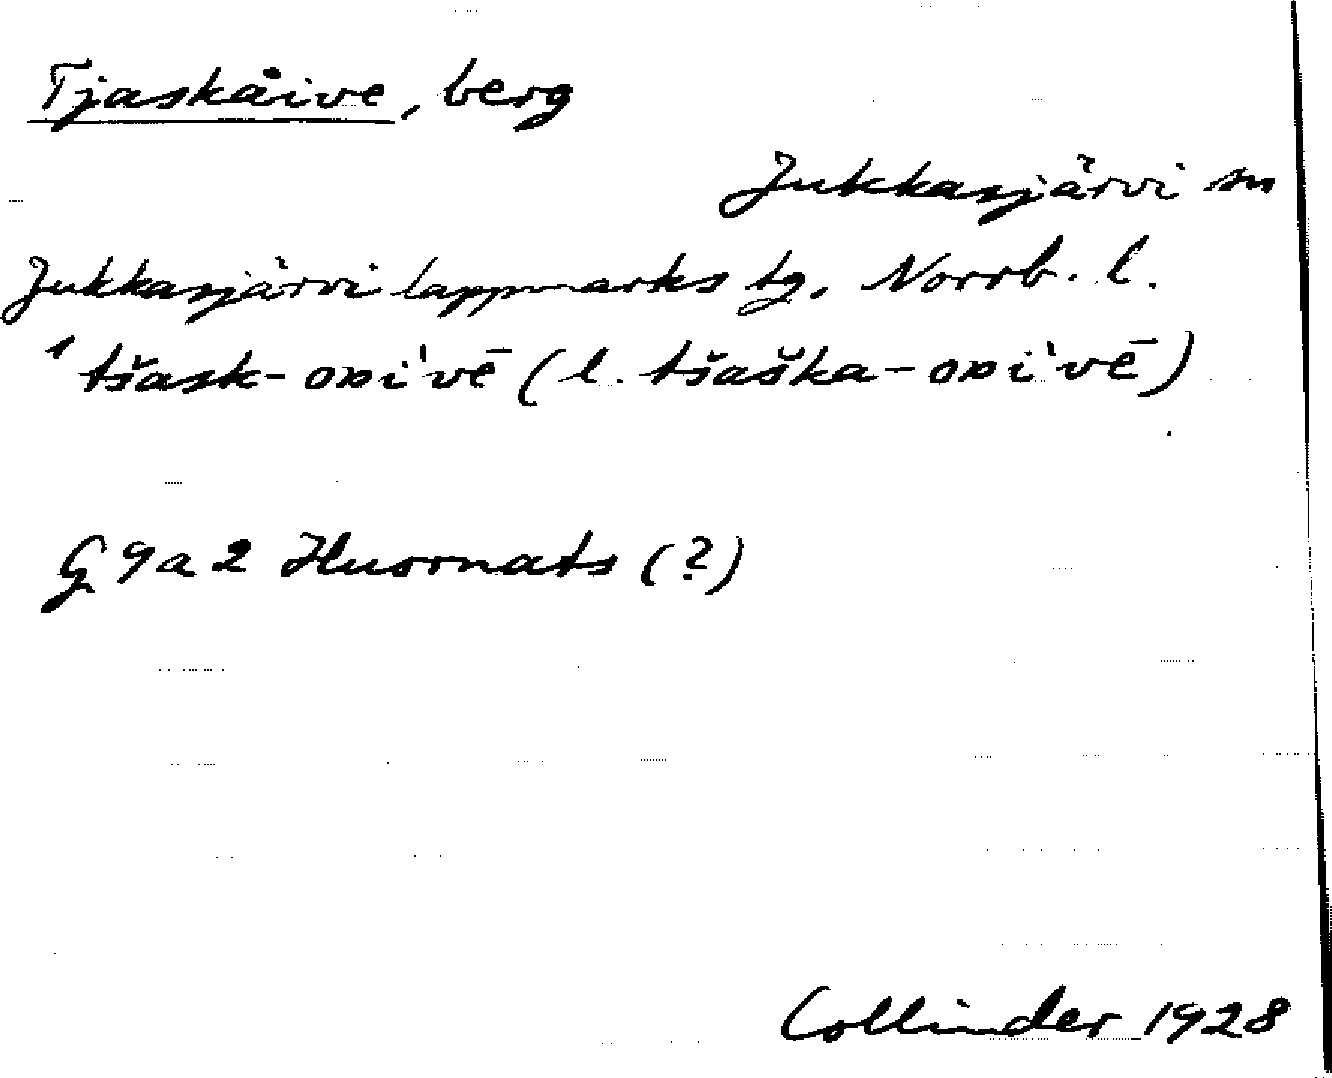 Tjaskåive, berg
Jukkasjärvi sn
Jukkasjärvi lappmarks tg, Norrb. l.
tšask-oɒi'vē (l. tšaška-oɒi'vē)
G 9a 2 Huornats (?)
Collinder 1928